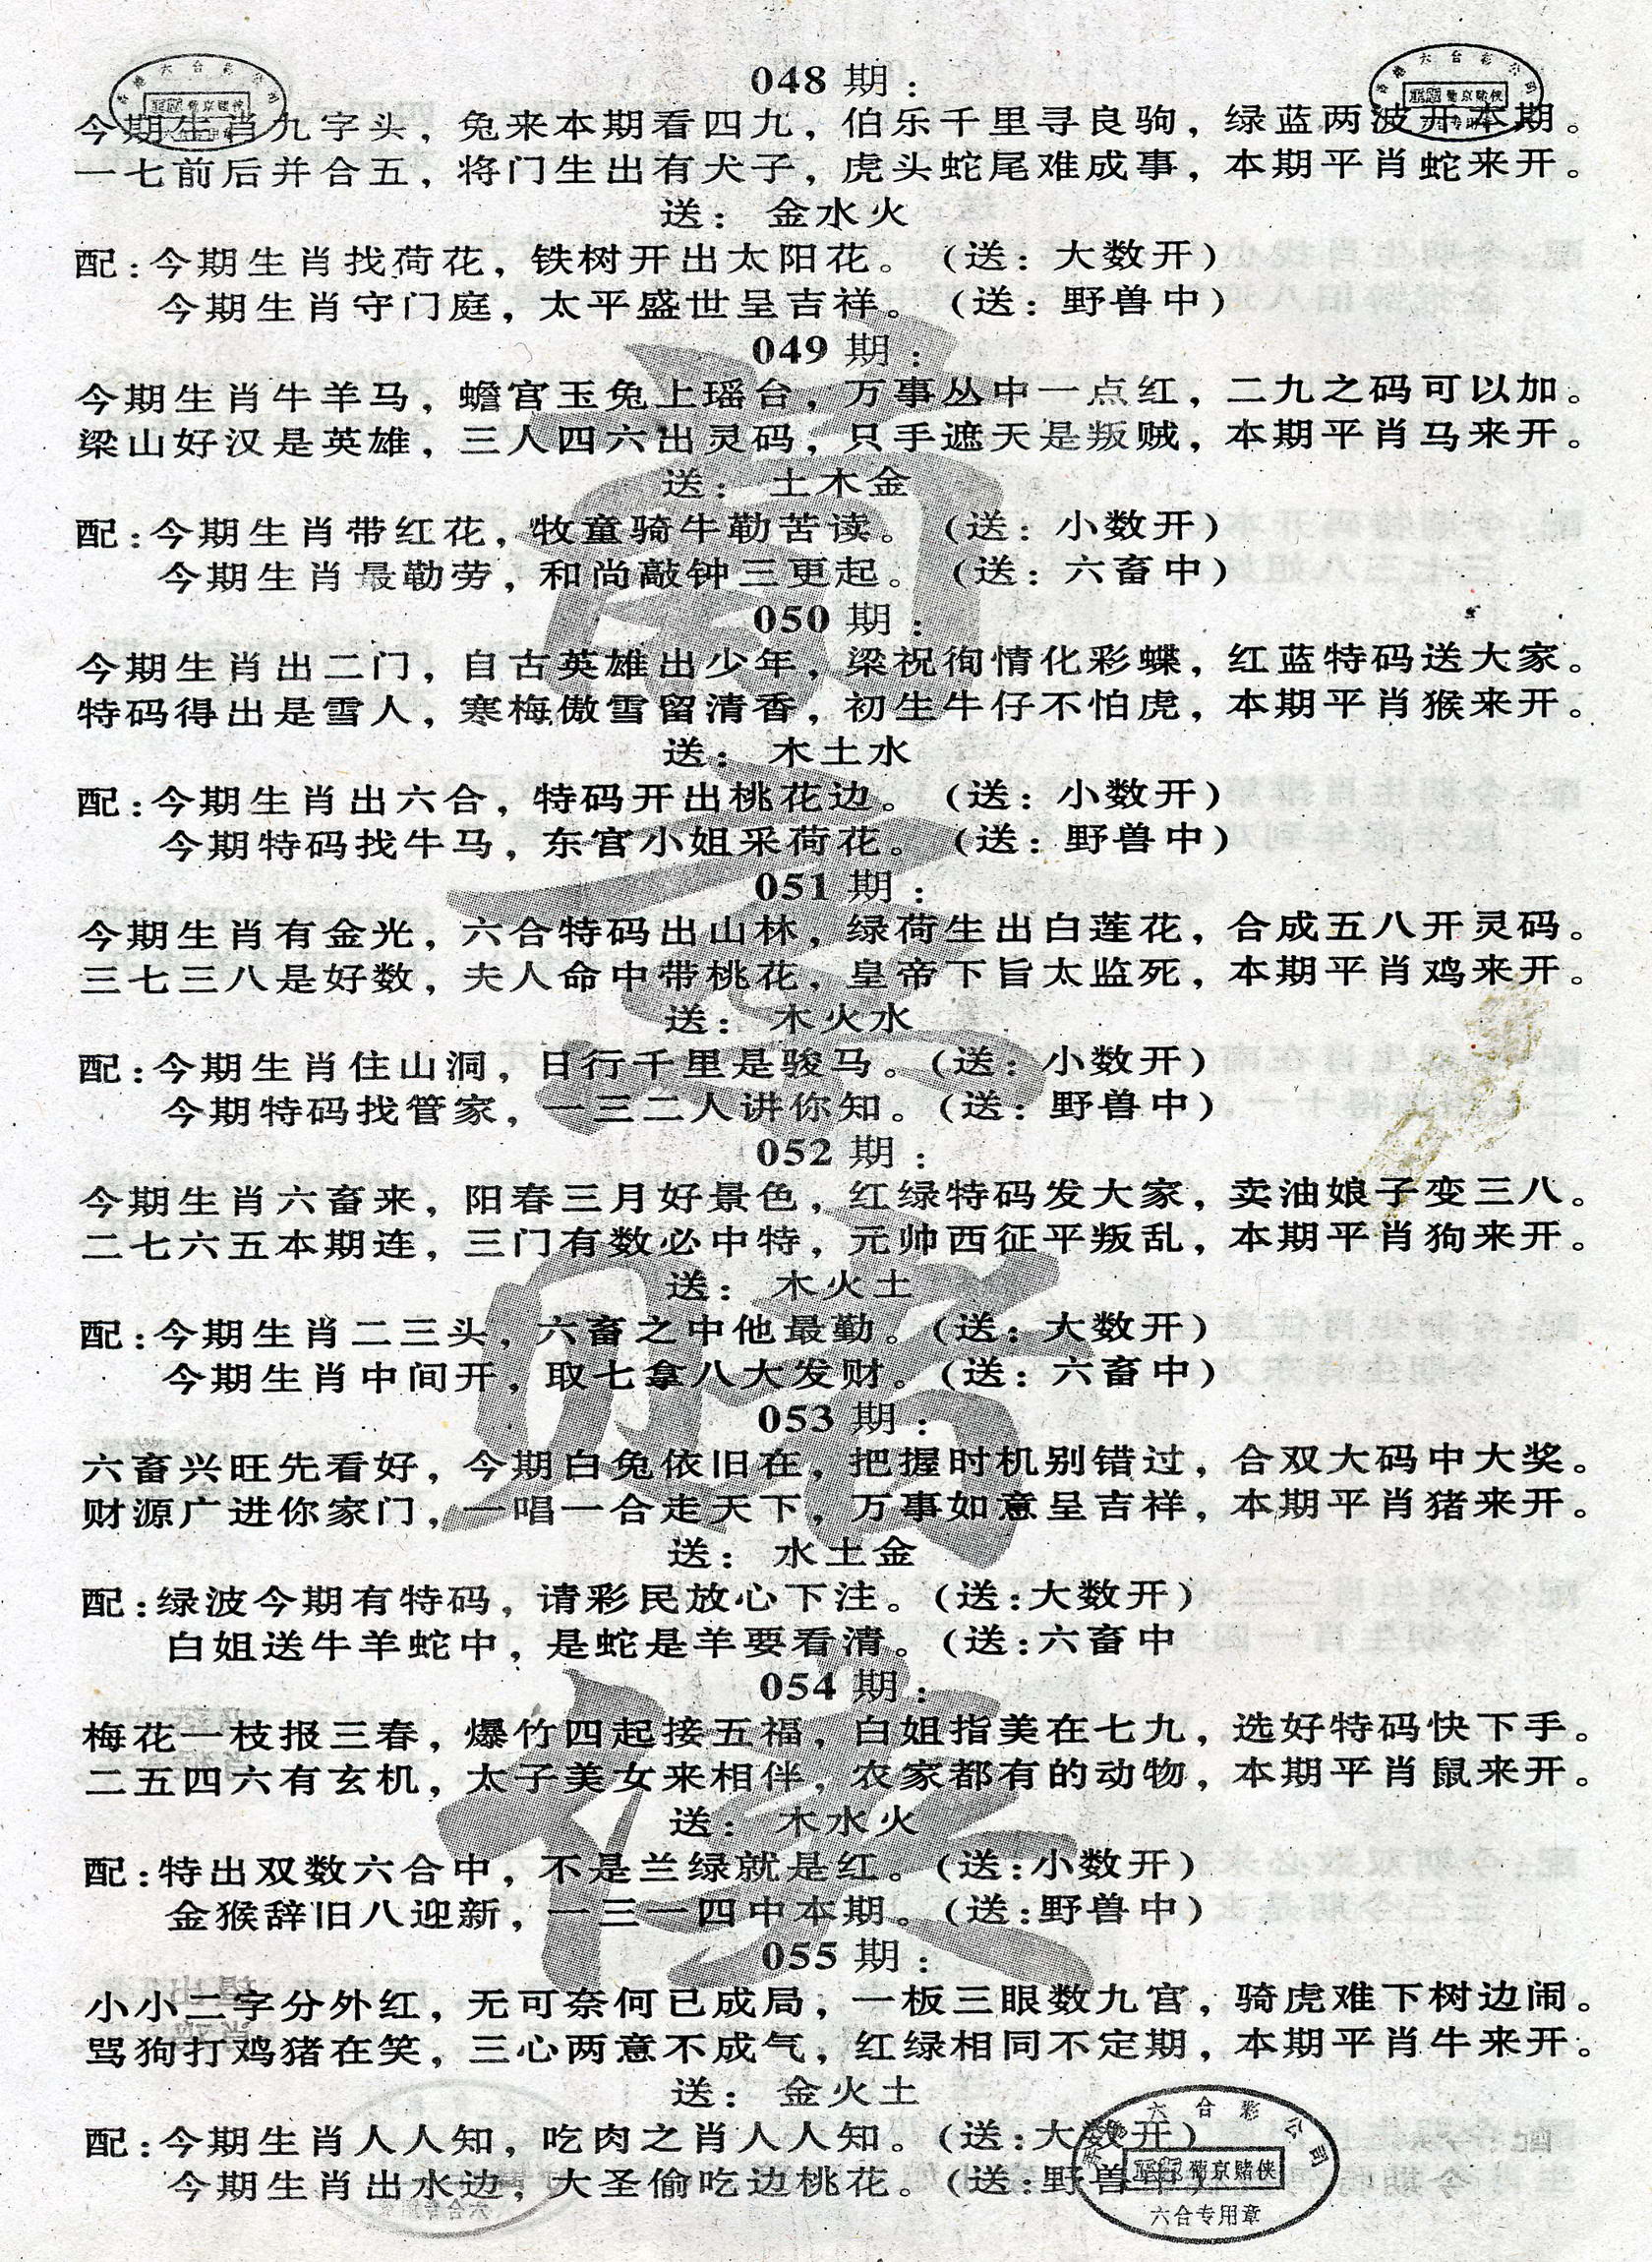 048 期：
今期生肖九字头，兔来本期看四九，伯乐千里寻良驹，绿蓝两波开本期。
一七前后并合五，将门生出有犬子，虎头蛇尾难成事，本期平肖蛇来开。
送： 金水火
配：今期生肖找荷花，铁树开出太阳花。（送：大数开）
今期生肖守门庭，太平盛世呈吉祥。（送：野兽中）
049 期：
今期生肖牛羊马，蟾宫玉兔上瑶台，万事丛中一点红，二九之码可以加。
梁山好汉是英雄，三人四六出灵码，只手遮天是叛贼，本期平肖马来开。
送： 土木金
配：今期生肖带红花，牧童骑牛勒苦读。（送：小数开）
今期生肖最勒劳，和尚敲钟三更起。（送：六畜中）
050 期：
今期生肖出二门，自古英雄出少年，梁祝徇情化彩蝶，红蓝特码送大家。
特码得出是雪人，寒梅傲雪留清香，初生牛仔不怕虎，本期平肖猴来开。
送： 木土水
配：今期生肖出六合，特码开出桃花边。（送：小数开）
今期特码找牛马，东宫小姐采荷花。（送：野兽中）
051 期：
今期生肖有金光，六合特码出山林，绿荷生出白莲花，合成五八开灵码。
三七三八是好数，夫人命中带桃花，皇帝下旨太监死，本期平肖鸡来开。
送： 木火水
配：今期生肖住山洞，日行千里是骏马。（送：小数开）
今期特码找管家，一三二人讲你知。（送：野兽中）
052 期：
今期生肖六畜来，阳春三月好景色，红绿特码发大家，卖油娘子变三八。
二七六五本期连，三门有数必中特，元帅西征平叛乱，本期平肖狗来开。
送： 木火土
配：今期生肖二三头，六畜之中他最勤。（送：大数开）
今期生肖中间开，取七拿八大发财。（送：六畜中）
053 期：
六畜兴旺先看好，今期白兔依旧在，把握时机别错过，合双大码中大奖。
财源广进你家门，一唱一合走天下，万事如意呈吉祥，本期平肖猪来开。
送： 水土金
配：绿波今期有特码，请彩民放心下注。（送：大数开）
白姐送牛羊蛇中，是蛇是羊要看清。（送：六畜中
054 期：
梅花一枝报三春，爆竹四起接五福，白姐指美在七九，选好特码快下手。
二五四六有玄机，太子美女来相伴，农家都有的动物，本期平肖鼠来开。
送： 木水火
配：特出双数六合中，不是兰绿就是红。（送：小数开）
金猴辞旧八迎新，一三一四中本期。（送：野兽中）
055 期：
小小二字分外红，无可奈何已成局，一板三眼数九宫，骑虎难下树边闹。
骂狗打鸡猪在笑，三心两意不成气，红绿相同不定期，本期平肖牛来开。
送： 金火土
配：今期生肖人人知，吃肉之肖人人知。（送：大数开）
今期生肖出水边，大圣偷吃边桃花。（送：野兽中）
六合彩公司
葡京赌侠
六合专用章